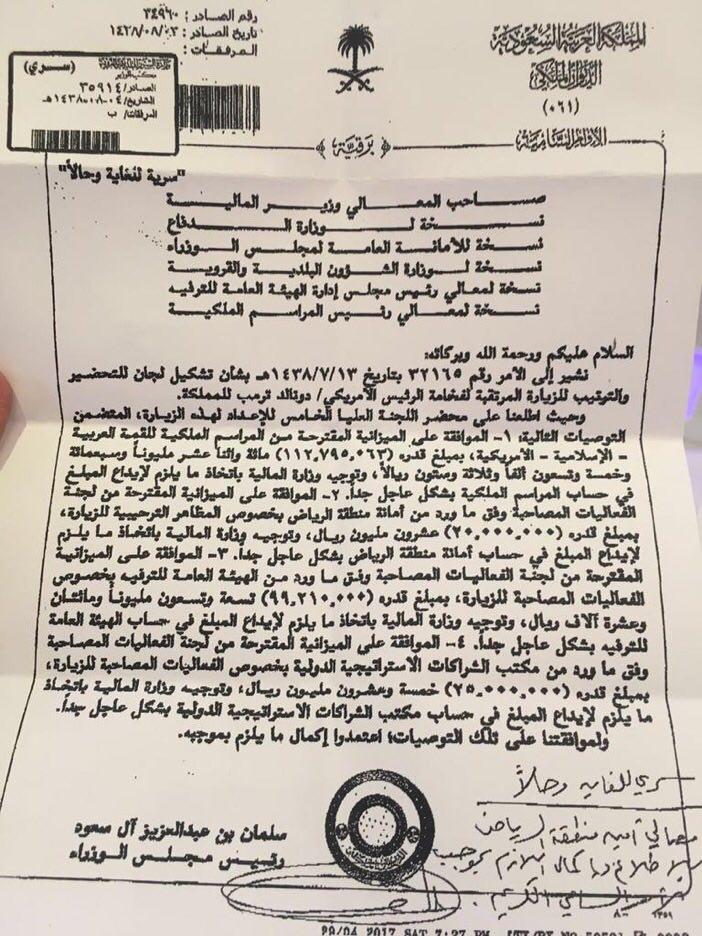 المملكة العربية السعودية
الديوان الملكي
(٠٦١)
الأوامر السامية
رقم الصادر : ٣٤٩٦٠
تاريخ الصادر : ١٤٣٨/٠٨/٠٣
المرفقات :
(سري)
مكتب الوزير
الصادر/ ٣٥٩١٤
التاريخ/ ٠٤-٠٨-١٤٣٨هـ
المرفقات/ ب
برقية
"سرية للغاية وحالاً"
صاحب المعالي وزير المالية
نسخة لوزارة الدفاع
نسخة للأمانة العامة لمجلس الوزراء
نسخة لوزارة الشؤون البلدية والقروية
نسخة لمعالي رئيس مجلس إدارة الهيئة العامة للترفيه
نسخة لمعالي رئيس المراسم الملكية
السلام عليكم ورحمة الله وبركاته:
نشير إلى الأمر رقم ٣٢١٦٥ بتاريخ ١٤٣٨/٧/١٣هـ بشأن تشكيل لجان للتحضير
والترتيب للزيارة المرتقبة لفخامة الرئيس الأمريكي/ دونالد ترمب للمملكة.
وحيث اطلعنا على محضر اللجنة العليا الخامس للإعداد لهذه الزيارة، المتضمن
التوصيات التالية: ١- الموافقة على الميزانية المقترحة من المراسم الملكية للقمة العربية
- الإسلامية - الأمريكية، بمبلغ قدره (١١٢,٧٩٥,٠٦٣) مائة واثنا عشر مليوناً وسبعمائة
وخمسة وتسعون ألفاً وثلاثة وستون ريالاً، وتوجيه وزارة المالية باتخاذ ما يلزم لإيداع المبلغ
في حساب المراسم الملكية بشكل عاجل جداً. ٢- الموافقة على الميزانية المقترحة من لجنة
الفعاليات المصاحبة وفق ما ورد من أمانة منطقة الرياض بخصوص المظاهر الترحيبية للزيارة،
بمبلغ قدره (٢٠,٠٠٠,٠٠٠) عشرون مليون ريال، وتوجيه وزارة المالية باتخاذ ما يلزم
لإيداع المبلغ في حساب أمانة منطقة الرياض بشكل عاجل جداً. ٣- الموافقة على الميزانية
المقترحة من لجنة الفعاليات المصاحبة وفق ما ورد من الهيئة العامة للترفيه بخصوص
الفعاليات المصاحبة للزيارة، بمبلغ قدره (٩٩,٢١٠,٠٠٠) تسعة وتسعون مليوناً ومائتان
وعشرة آلاف ريال، وتوجيه وزارة المالية باتخاذ ما يلزم لإيداع المبلغ في حساب الهيئة العامة
للترفيه بشكل عاجل جداً. ٤- الموافقة على الميزانية المقترحة من لجنة الفعاليات المصاحبة
وفق ما ورد من مكتب الشراكات الاستراتيجية الدولية بخصوص الفعاليات المصاحبة للزيارة،
بمبلغ قدره (٢٥,٠٠٠,٠٠٠) خمسة وعشرون مليون ريال، وتوجيه وزارة المالية باتخاذ
ما يلزم لإيداع المبلغ في حساب مكتب الشراكات الاستراتيجية الدولية بشكل عاجل جداً.
ولموافقتنا على تلك التوصيات؛ اعتمدوا إكمال ما يلزم بموجبه.
سلمان بن عبدالعزيز آل سعود
رئيس مجلس الوزراء
سري للغاية وحالاً
معالي أمين منطقة الرياض
للاطلاع وإكمال اللازم بموجب
الأمر السامي الكريم
29/04 2017 SAT 7:27 PM